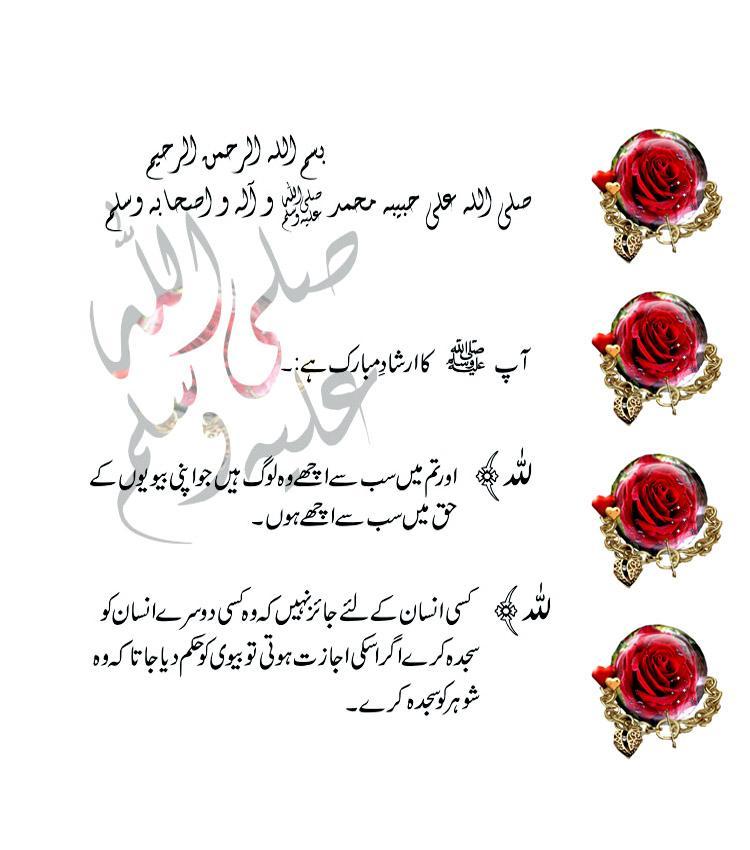 بسم اللہ الرحمن الرحیم
صلی اللہ علی حبیبہ محمد ﷺ و آلہ و اصحابہ وسلم
صلى الله
عليه وسلم
آپ ﷺ کا ارشادِ مبارک ہے:۔
للہ اور تم میں سب سے اچھے وہ لوگ ہیں جو اپنی بیویوں کے
حق میں سب سے اچھے ہوں۔
للہ کسی انسان کے لئے جائز نہیں کہ وہ کسی دوسرے انسان کو
سجدہ کرے اگر اسکی اجازت ہوتی تو بیوی کو حکم دیا جاتا کہ وہ
شوہر کو سجدہ کرے۔